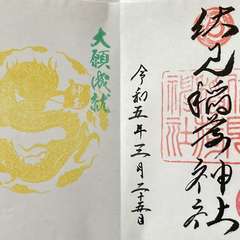 伏見稲荷神社
令和五年三月二十五日
大願成就